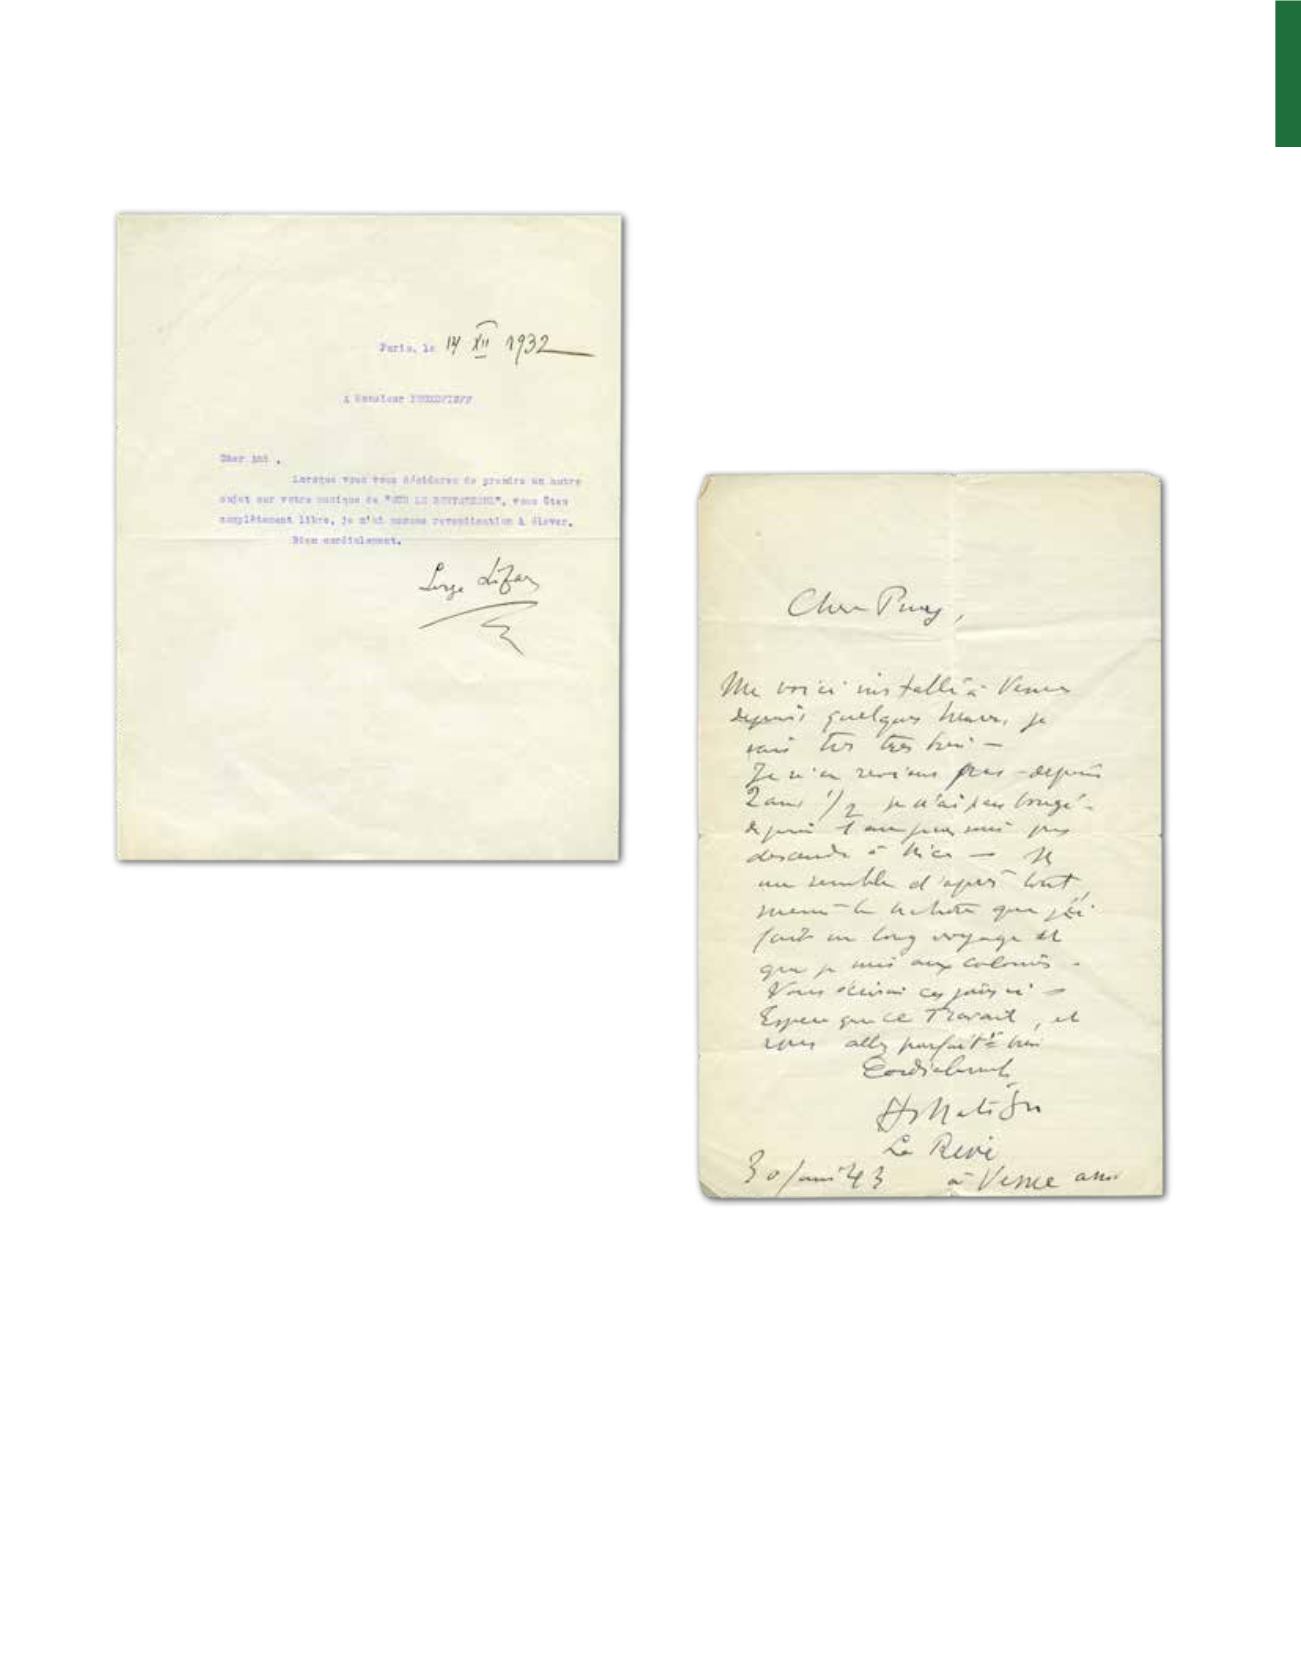 Paris, le 14 XII 1932
A Monsieur PROKOFIEFF
Cher Ami ,
Lorsque vous vous déciderez de prendre un autre
sujet sur votre musique de "SUR LE BORYSTHENE", vous êtes
complètement libre, je n'ai aucune revendication à élever.
Bien cordialement.
Serge Lifar
Cher Puy,
Me voici installé à Vence
depuis quelques heures, je
suis très très bien —
Je n'en reviens pas - depuis
2 ans 1/2 je n'ai pas bougé -
depuis 1 an je ne suis pas
descendu à Nice — Il
me semble d'après tout,
même la que j'ai
fait un long voyage et
que je suis aux colonies -
Vous écrirai ces jours ci -
Espère que le Travail, et
vous allez parfaitt bien
Cordialement
H. Matisse
Le Rêve
30 juin 43 à Vence